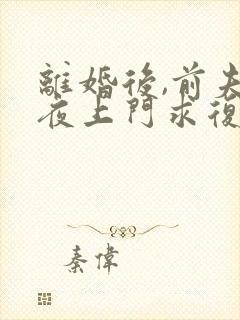 離婚後,前夫
夜上門求復
秦偉